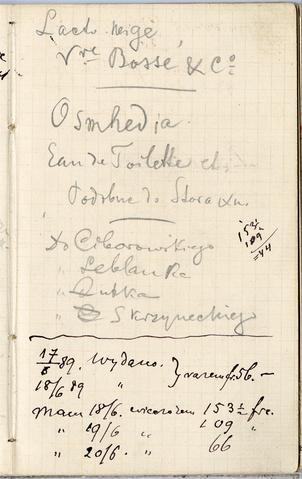 Lacto-neige
Vve Bosse & Co
Osmhedia
Eau de Toilette et
Podobne do Storaxu.
Do Ciborowskiego
" Leblanka
" Dubka
" Skrzyneckiego
153½
109
=44
17/5 89. Wydano. } razem fr. 56. —
18/6 89 "
Mam 18/6. wieczorem 153½ frc.
" 19/6 " 109 "
" 20/6. " 66